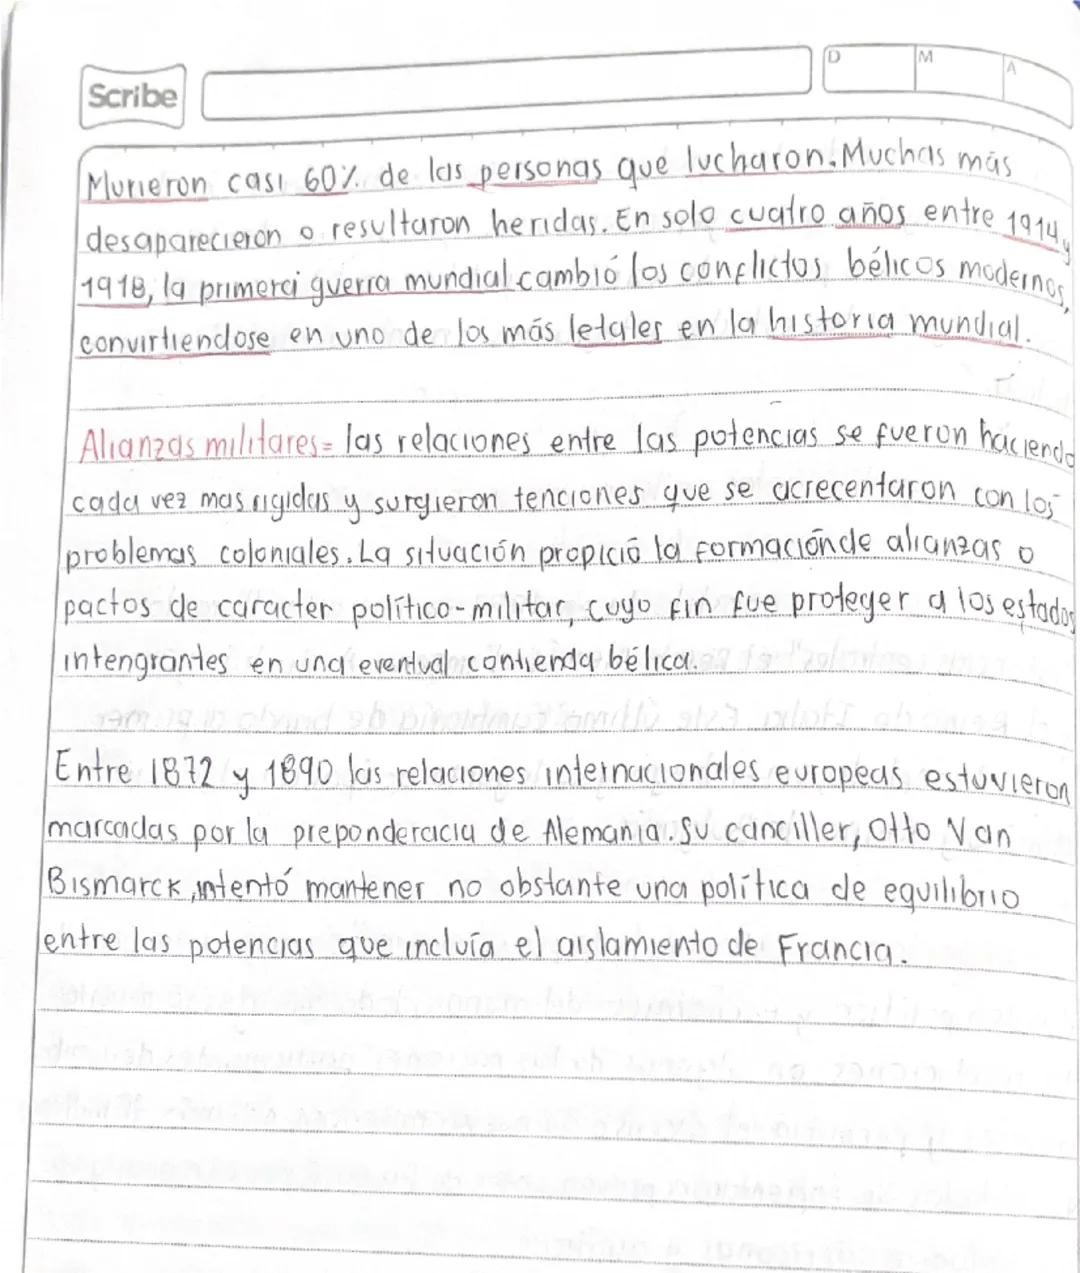 Scribe
D M A
Murieron casi 60% de las personas que lucharon. Muchas más
desaparecieron o resultaron heridas. En solo cuatro años entre 1914 y
1918, la primera guerra mundial cambió los conflictos bélicos modernos,
convirtiendose en uno de los más letales en la historia mundial.
Alianzas militares= las relaciones entre las potencias se fueron haciendo
cada vez mas rigidas y surgieron tenciones que se acrecentaron con los
problemas coloniales. La situación propició la formación de alianzas o
pactos de caracter político-militar, cuyo fin fue proteger a los estados
intengrantes en una eventual contienda bélica.
Entre 1872 y 1890 las relaciones internacionales europeas estuvieron
marcadas por la preponderacia de Alemania. Su canciller, Otto Van
Bismarck, intentó mantener no obstante una política de equilibrio
entre las potencias que incluía el aislamiento de Francia.